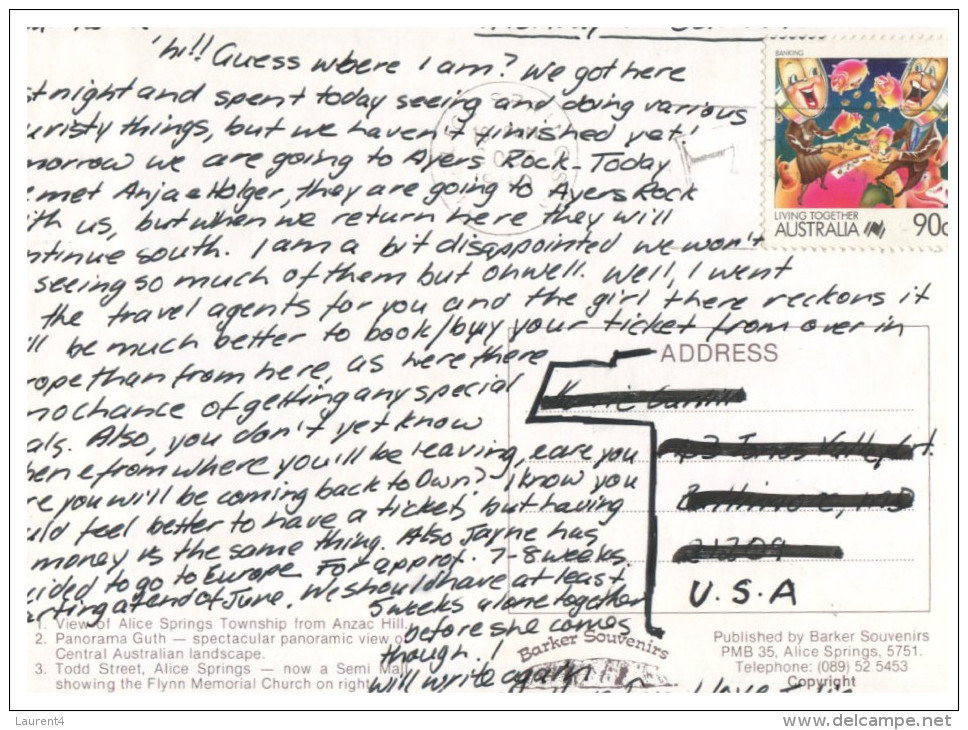 'hi!! Guess where I am? We got here
tnight and spent today seeing and doing various
uristy things, but we haven't finished yet!
morrow we are going to Ayers Rock. Today
met Anja & Holger, they are going to Ayers Rock
th us, but when we return here they will
ntinue south. I am a bit disappointed we won't
seeing so much of them but ohwell. Well, I went
the travel agents for you and the girl there reckons it
ll be much better to book/buy your ticket from over in
rope than from here, as here there
no chance of getting any special
als. Also, you don't yet know
en & from where you'll be leaving, & are you
re you will be coming back to Own? I know you
uld feel better to have a ticket, but having
money is the same thing. Also Jayne has
ided to go to Europe For approx. 7-8 weeks.
rting at end of June. We should have at least
5 weeks alone together
before she comes
though. I
will write again
BANKING
LIVING TOGETHER
AUSTRALIA 90c
ADDRESS
U.S.A
1. View of Alice Springs Township from Anzac Hill.
2. Panorama Guth — spectacular panoramic view of
Central Australian landscape.
3. Todd Street, Alice Springs — now a Semi Mall
showing the Flynn Memorial Church on right
Barker Souvenirs
Published by Barker Souvenirs
PMB 35, Alice Springs, 5751.
Telephone: (089) 52 5453
Copyright
Laurent4
www.delcampe.net